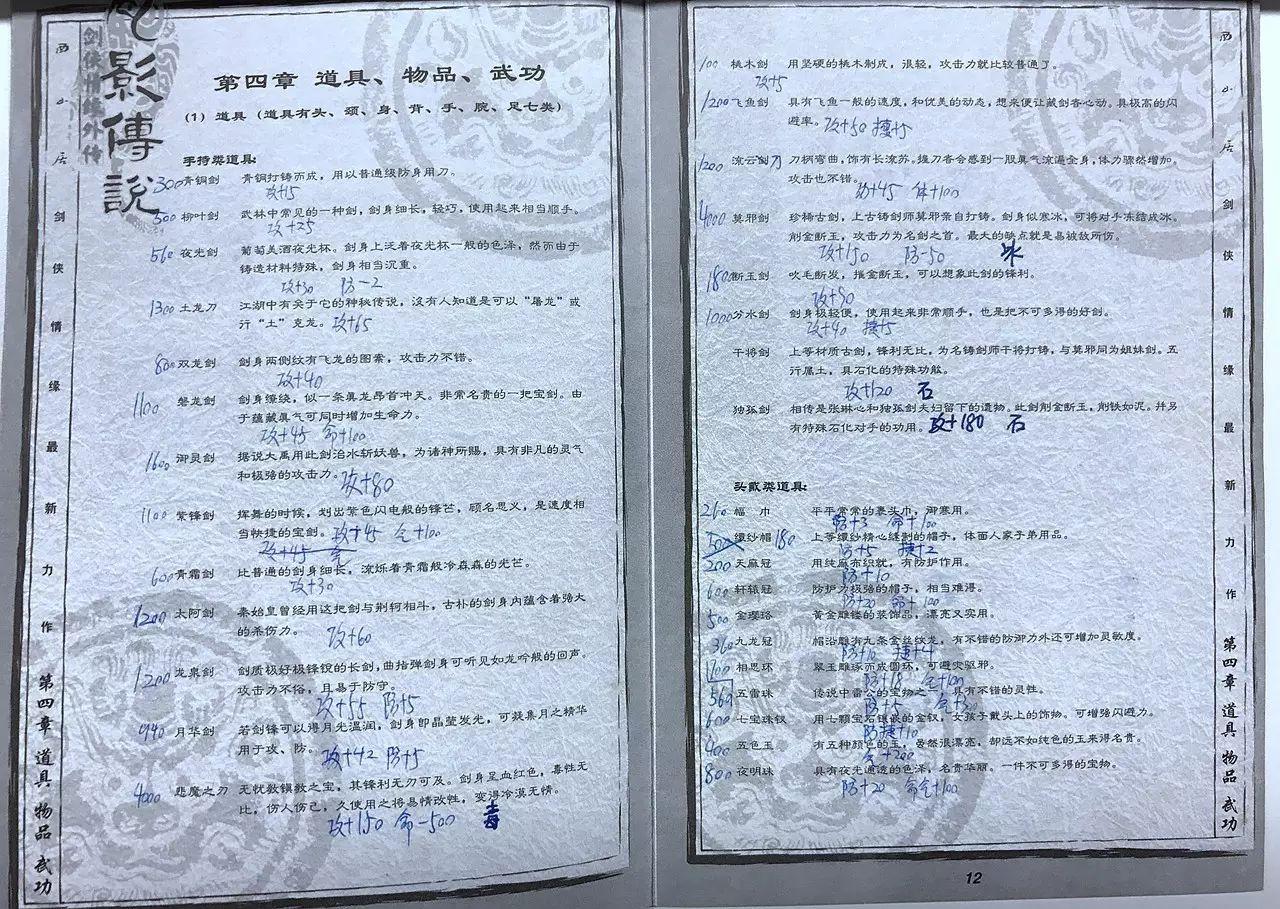 剑侠情缘外传
月影傳説
西山居剑侠情缘最新力作
第四章 道具 物品 武功
第四章 道具、物品、武功
(1) 道具(道具有头、颈、身、背、手、腕、足七类)
手持类道具:
300 青铜剑 青铜打铸而成,用以普通级防身用刀。
攻+15
500 柳叶剑 武林中常见的一种剑,剑身细长,轻巧,使用起来相当顺手。
攻+25
560 夜光剑 葡萄美酒夜光杯。剑身上泛着夜光杯一般的色泽,然而由于
铸造材料特殊,剑身相当沉重。
攻+30 防-2
1300 土龙刀 江湖中有关于它的种秘传说,没有人知道是可以“屠龙”或
行“土”克龙。攻+65
800 双龙剑 剑身两侧纹有飞龙的图案,攻击力不错。
攻+40
1100 磐龙剑 剑身缭绕,似一条真龙昂首冲天。非常名贵的一把宝剑。由
于蕴藏真气可同时增加生命力。
攻+45 命+100
1600 御灵剑 据说大禹用此剑治水斩妖兽,为诸神所赐,具有非凡的灵气
和极强的攻击力。攻+80
1100 紫锋剑 挥舞的时候,划出紫色闪电般的锋芒,顾名思义,是速度相
当快捷的宝剑。攻+45 气+100
攻+45 气
600 青霜剑 比普通的剑身细长,流烁着青霜般冷森森的光芒。
攻+30
1200 太阿剑 秦始皇曾经用这把剑与荆轲相斗,古朴的剑身内蕴含着强大
的杀伤力。
攻+60
1200 龙泉剑 剑质极好极锋锐的长剑,曲指弹剑身可听见如龙吟般的回声。
攻击力不俗,且易于防守。
攻+55 防+5
940 月华剑 若剑锋可以得月光温润,剑身即晶莹发光,可凝集月之精华
用于攻、防。
攻+42 防+5
4000 悲魔之刃 无忧教镇教之宝,其锋利无刃可及。剑身呈血红色,毒性无
比,伤人伤己,久使用之将易情改性,变得冷漠无情。
攻+150 命-500 毒
100 桃木剑 用坚硬的桃木制成,很轻,攻击力就比较普通了。
攻+5
1200 飞鱼剑 具有飞鱼一般的速度,和优美的动态,想来便让藏剑客心动。具极高的闪
避率。攻+50 捷+5
1200 流云剑 刀 刀柄弯曲,饰有长流苏。握刀者会感到一股真气流遍全身,体力骤然增加。
攻击也不错。
攻+45 体+100
4000 莫邪剑 珍稀古剑,上古铸剑师莫邪亲自打铸。剑身似寒冰,可将对手冻结成冰。
削金断玉,攻击力为名剑之首。最大的缺点就是易被敌所伤。
攻+150 防-50 冰
180 断玉剑 吹毛断发,摧金断玉,可以想象此剑的锋利。
攻+90
1000 分水剑 剑身极轻便,使用起来非常顺手,也是把不可多得的好剑。
攻+40 捷+5
干将剑 上等材质古剑,锋利无比,为名铸剑师干将打铸,与莫邪同为姐妹剑。五
行属土,具石化的特殊功能。
攻+120 石
独孤剑 相传是张琳心和独孤剑夫妇留下的遗物。此剑削金断玉,削铁如泥。并另
有特殊石化对手的功用。攻+180 石
头戴类道具:
260 幅巾 平平常常的裹头巾,御寒用。
防+3 命+100
500 缥纱帽 180 上等缥纱精心缝制的帽子,体面人家子弟用品。
防+5 捷+2
200 天麻冠 用纯麻布织就,有防护作用。
防+10
600 轩辕冠 防护力极强的帽子,相当难得。
防+20 命+100
500 金璎珞 黄金雕镂的装饰品,漂亮又实用。
360 九龙冠 帽沿雕有九条金丝纹龙,有不错的防御力外还可增加灵敏度。
防+10 捷+4
700 相思环 翠玉雕琢而成圆环,可避灾驱邪。
防+18 气+100
560 五雷珠 传说中雷公的宝物之一,具有不错的灵性。
防+5
600 七宝珠钗 用七颗宝石镶嵌的金钗,女孩子戴头上的饰物。可增强闪避力。
防捷+10
400 五色玉 有五种颜色的玉,虽然很漂亮,却远不如纯色的玉来得名贵。
气+200
800 夜明珠 具有夜光通透的色泽,名贵华丽。一件不可多得的宝物。
防+20 命气+100
西山居剑侠情缘最新力作
第四章 道具 物品 武功
12